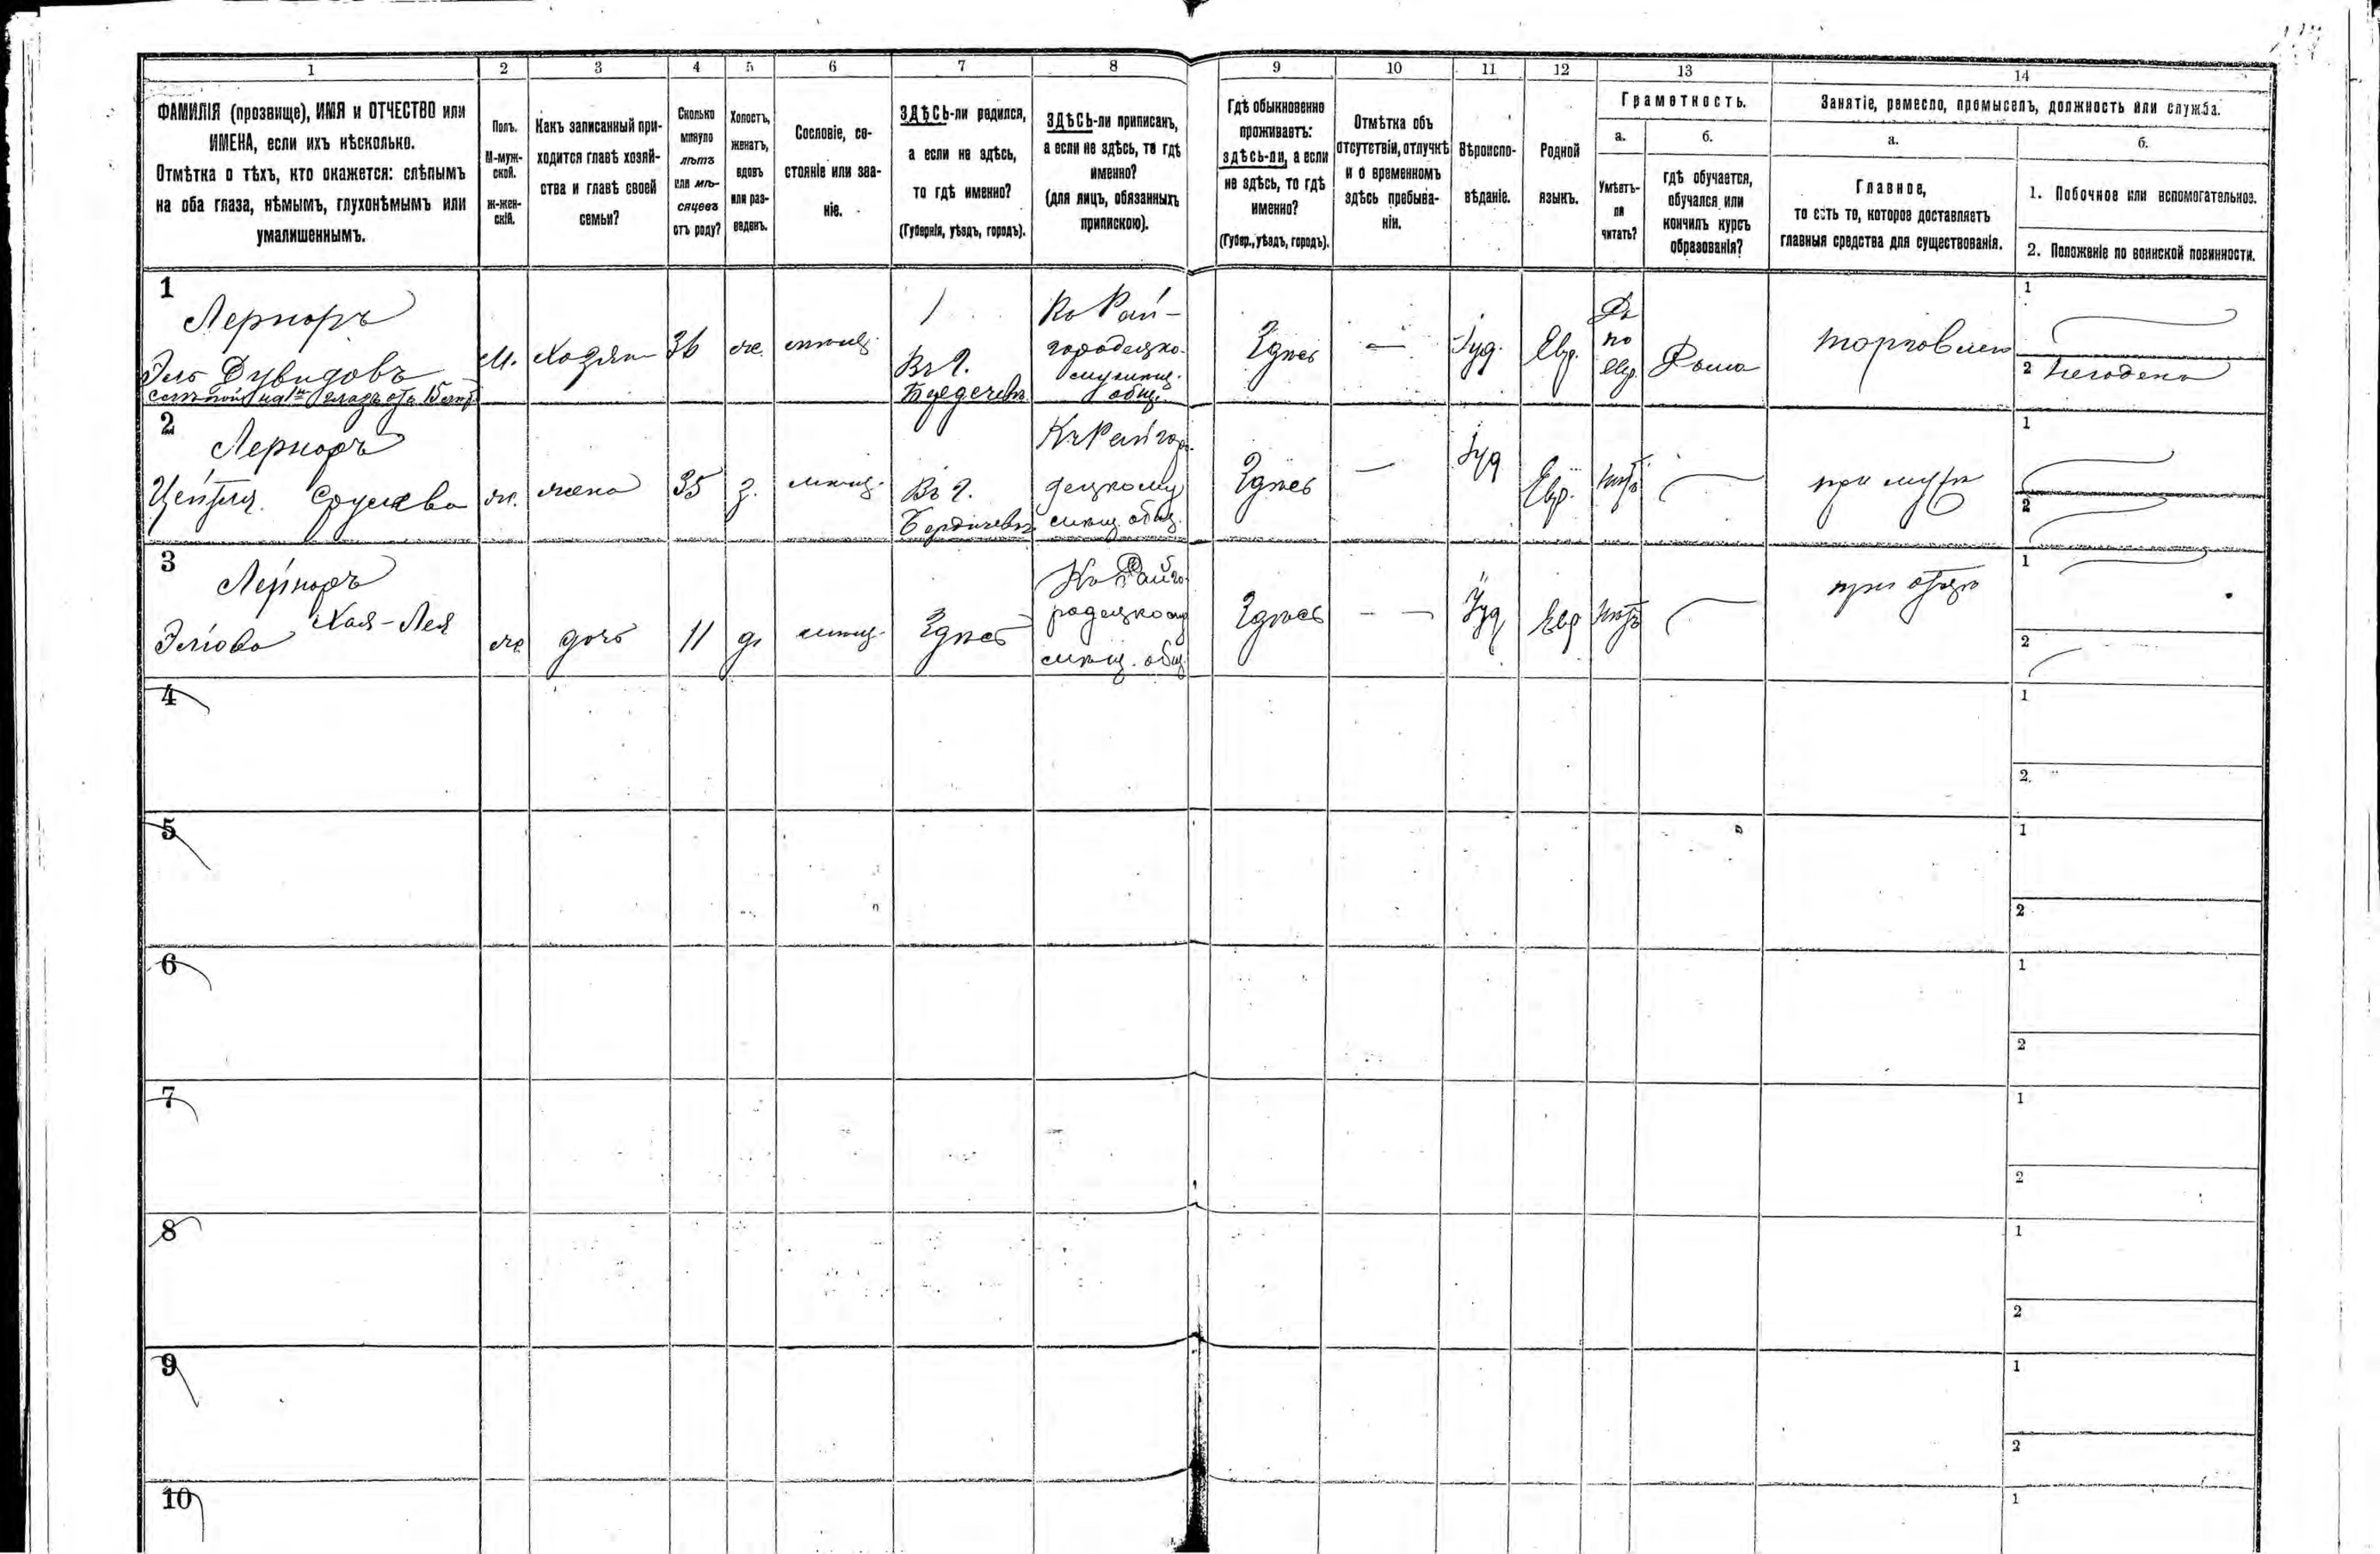 1 2 3 4 5 6 7 8 9 10 11 12 13 14
ФАМИЛІЯ (прозвище), ИМЯ и ОТЧЕСТВО или
ИМЕНА, если ихъ нѣсколько.
Отмѣтка о тѣхъ, кто окажется: слѣпымъ
на оба глаза, нѣмымъ, глухонѣмымъ или
умалишеннымъ.
Полъ.
М-муж-
ской.
ж-жен-
скій.
Какъ записанный при-
ходится главѣ хозяй-
ства и главѣ своей
семьи?
Сколько
минуло
лѣтъ
или мѣ-
сяцевъ
отъ роду?
Холостъ,
женатъ,
вдовъ
или раз-
веденъ.
Сословіе, со-
стояніе или зва-
ніе.
ЗДѢСЬ-ли родился,
а если не здѣсь,
то гдѣ именно?
(Губернія, уѣздъ, городъ).
ЗДѢСЬ-ли приписанъ,
а если не здѣсь, то гдѣ
именно?
(для лицъ, обязанныхъ
припискою).
Гдѣ обыкновенно
проживаетъ:
здѣсь-ли, а если
не здѣсь, то гдѣ
именно?
(Губер., уѣздъ, городъ).
Отмѣтка объ
отсутствіи, отлучкѣ
и о временномъ
здѣсь пребыва-
ніи.
Вѣроиспо-
вѣданіе.
Родной
языкъ.
Грамотность.
а.
Умѣетъ-
ли
читать?
б.
гдѣ обучается,
обучался или
кончилъ курсъ
образованія?
Занятіе, ремесло, промыселъ, должность или служба.
а.
Главное,
то есть то, которое доставляетъ
главныя средства для существованія.
б.
1. Побочное или вспомогательное.
2. Положеніе по воинской повинности.
1
Лернеръ
Эль Дувидовъ
М.
Хозяин
36
ж.
мѣщ.
Въ г.
Бердичевѣ
Ко Рай-
городецко-
му мѣщ.
общ.
Здѣсь
—
Іуд.
Евр.
Да
по
евр.
Дома
торговлею
1
2
2
Лернеръ
Цейтля Срулева
ж.
жена
35
з.
мѣщ.
Въ г.
Бердичевѣ
Къ Райгоро-
децкому
мѣщ. общ.
Здѣсь
—
Іуд
Евр.
нѣтъ
при мужѣ
1
2
3
Лернеръ
Хая-Лея
Эліова
ж.
дочь
11
д.
мѣщ.
Здѣсь
Ко Райго-
родецкому
мѣщ. общ.
Здѣсь
— —
Іуд
Евр
нѣтъ
при отцѣ
1
2
4
1
2.
5
1
2
6
1
2
7
1
2
8
1
2
9
1
2
10
1